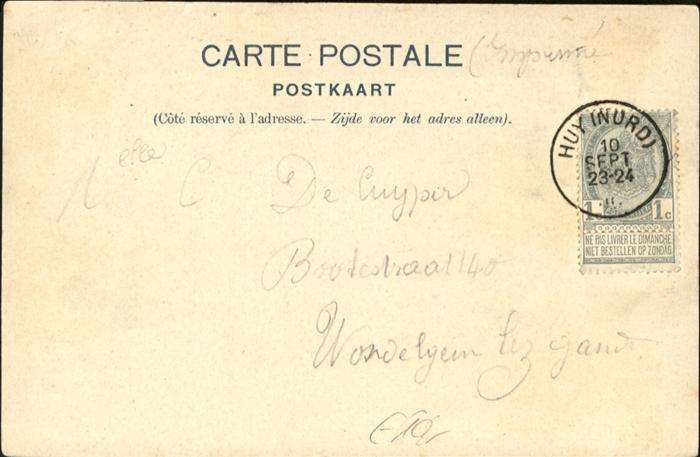 CARTE POSTALE (Imprimé
POSTKAART
(Côté réservé à l'adresse. — Zijde voor het adres alleen).
HUY (NORD)
10
SEPT
23-24
1c
NE PAS LIVRER LE DIMANCHE
NIET BESTELLEN OP ZONDAG
Melle C De Cuyper
140
Wondelgem lez gand